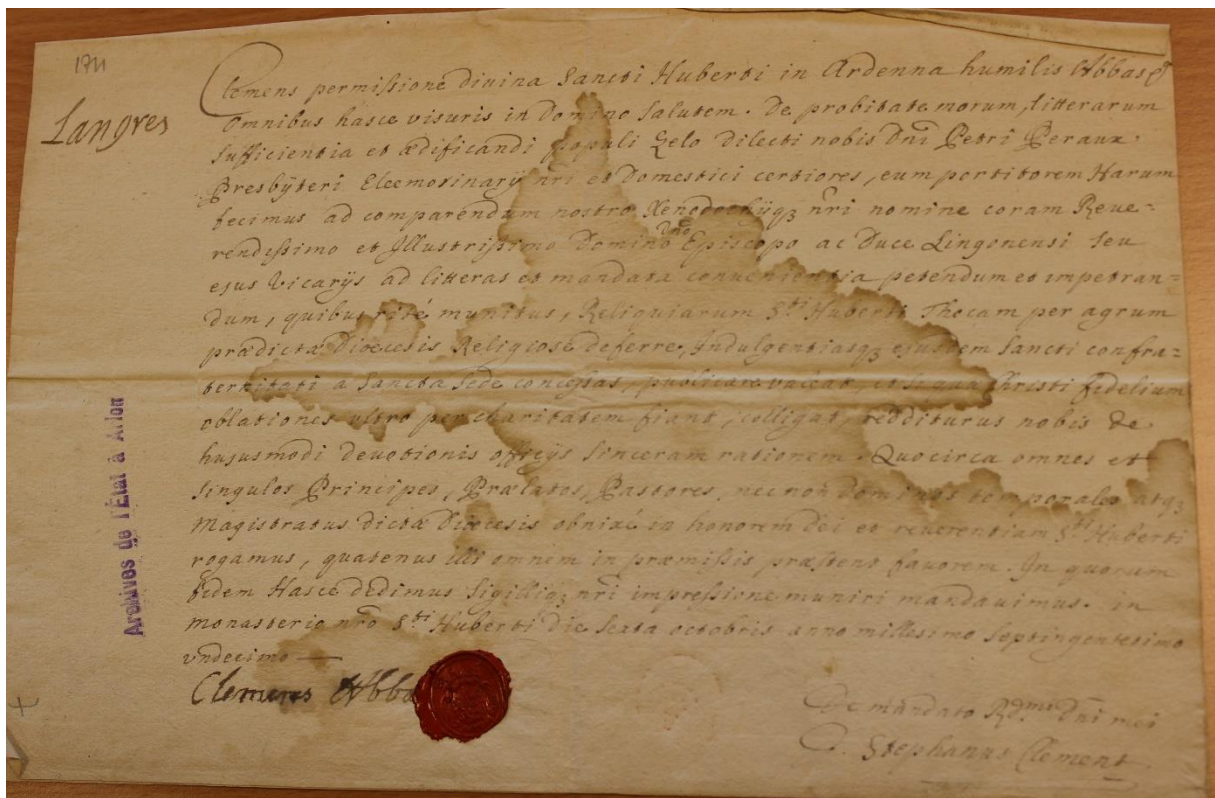 1711
Langres
Clemens permissione divina Sancti Huberti in Ardenna humilis Abbas
Omnibus hasce visuris in Domino Salutem. De probitate morum, litterarum
Sufficientia et ædificandi populi Zelo dilecti nobis Dni Petri Peraux
Presbÿteri Eleemosinarÿ nri et Domestici certiores, eum portitorem Harum
fecimus ad comparendum nostro Xenodochÿq3 nri nomine coram Reve=
rendissimo et Jllustrissimo Domino Dno Episcopo ac Duce Lingonensi seu
ejus Vicarÿs ad litteras et mandata convenientia petendum et impetran=
dum, quibus rité munitus, Reliquiarum Sti Huberti Thecam per agrum
prædictæ Diœcesis Religiosé deferre, Jndulgentiasq3 ejusdem Sancti confra=
ternitati a Sancta Sede concessas, publicare valeat, et si qua Christi fidelium
oblationes ultro per charitatem fiant, colligat, redditurus nobis de
hujusmodi devotionis officÿs Sinceram rationem. Quocirca omnes et
Singulos Principes, Prælatos, Pastores, necnon Dominos temporales atq3
Magistratus dictæ Diœcesis obnixé in honorem Dei et reverentiam Sti Huberti
rogamus, quatenus illi omnem in præmissis præstent favorem. Jn quorum
fidem Hasce dedimus Sigilliq3 nri impressione muniri mandavimus. in
monasterio nro Sti Huberti die Sexta octobris anno millesimo Septingentesimo
vndecimo
Clemens Abba
De mandato Rdmi Dni mei
Stephanus Clement
Archives de l'État à Arlon